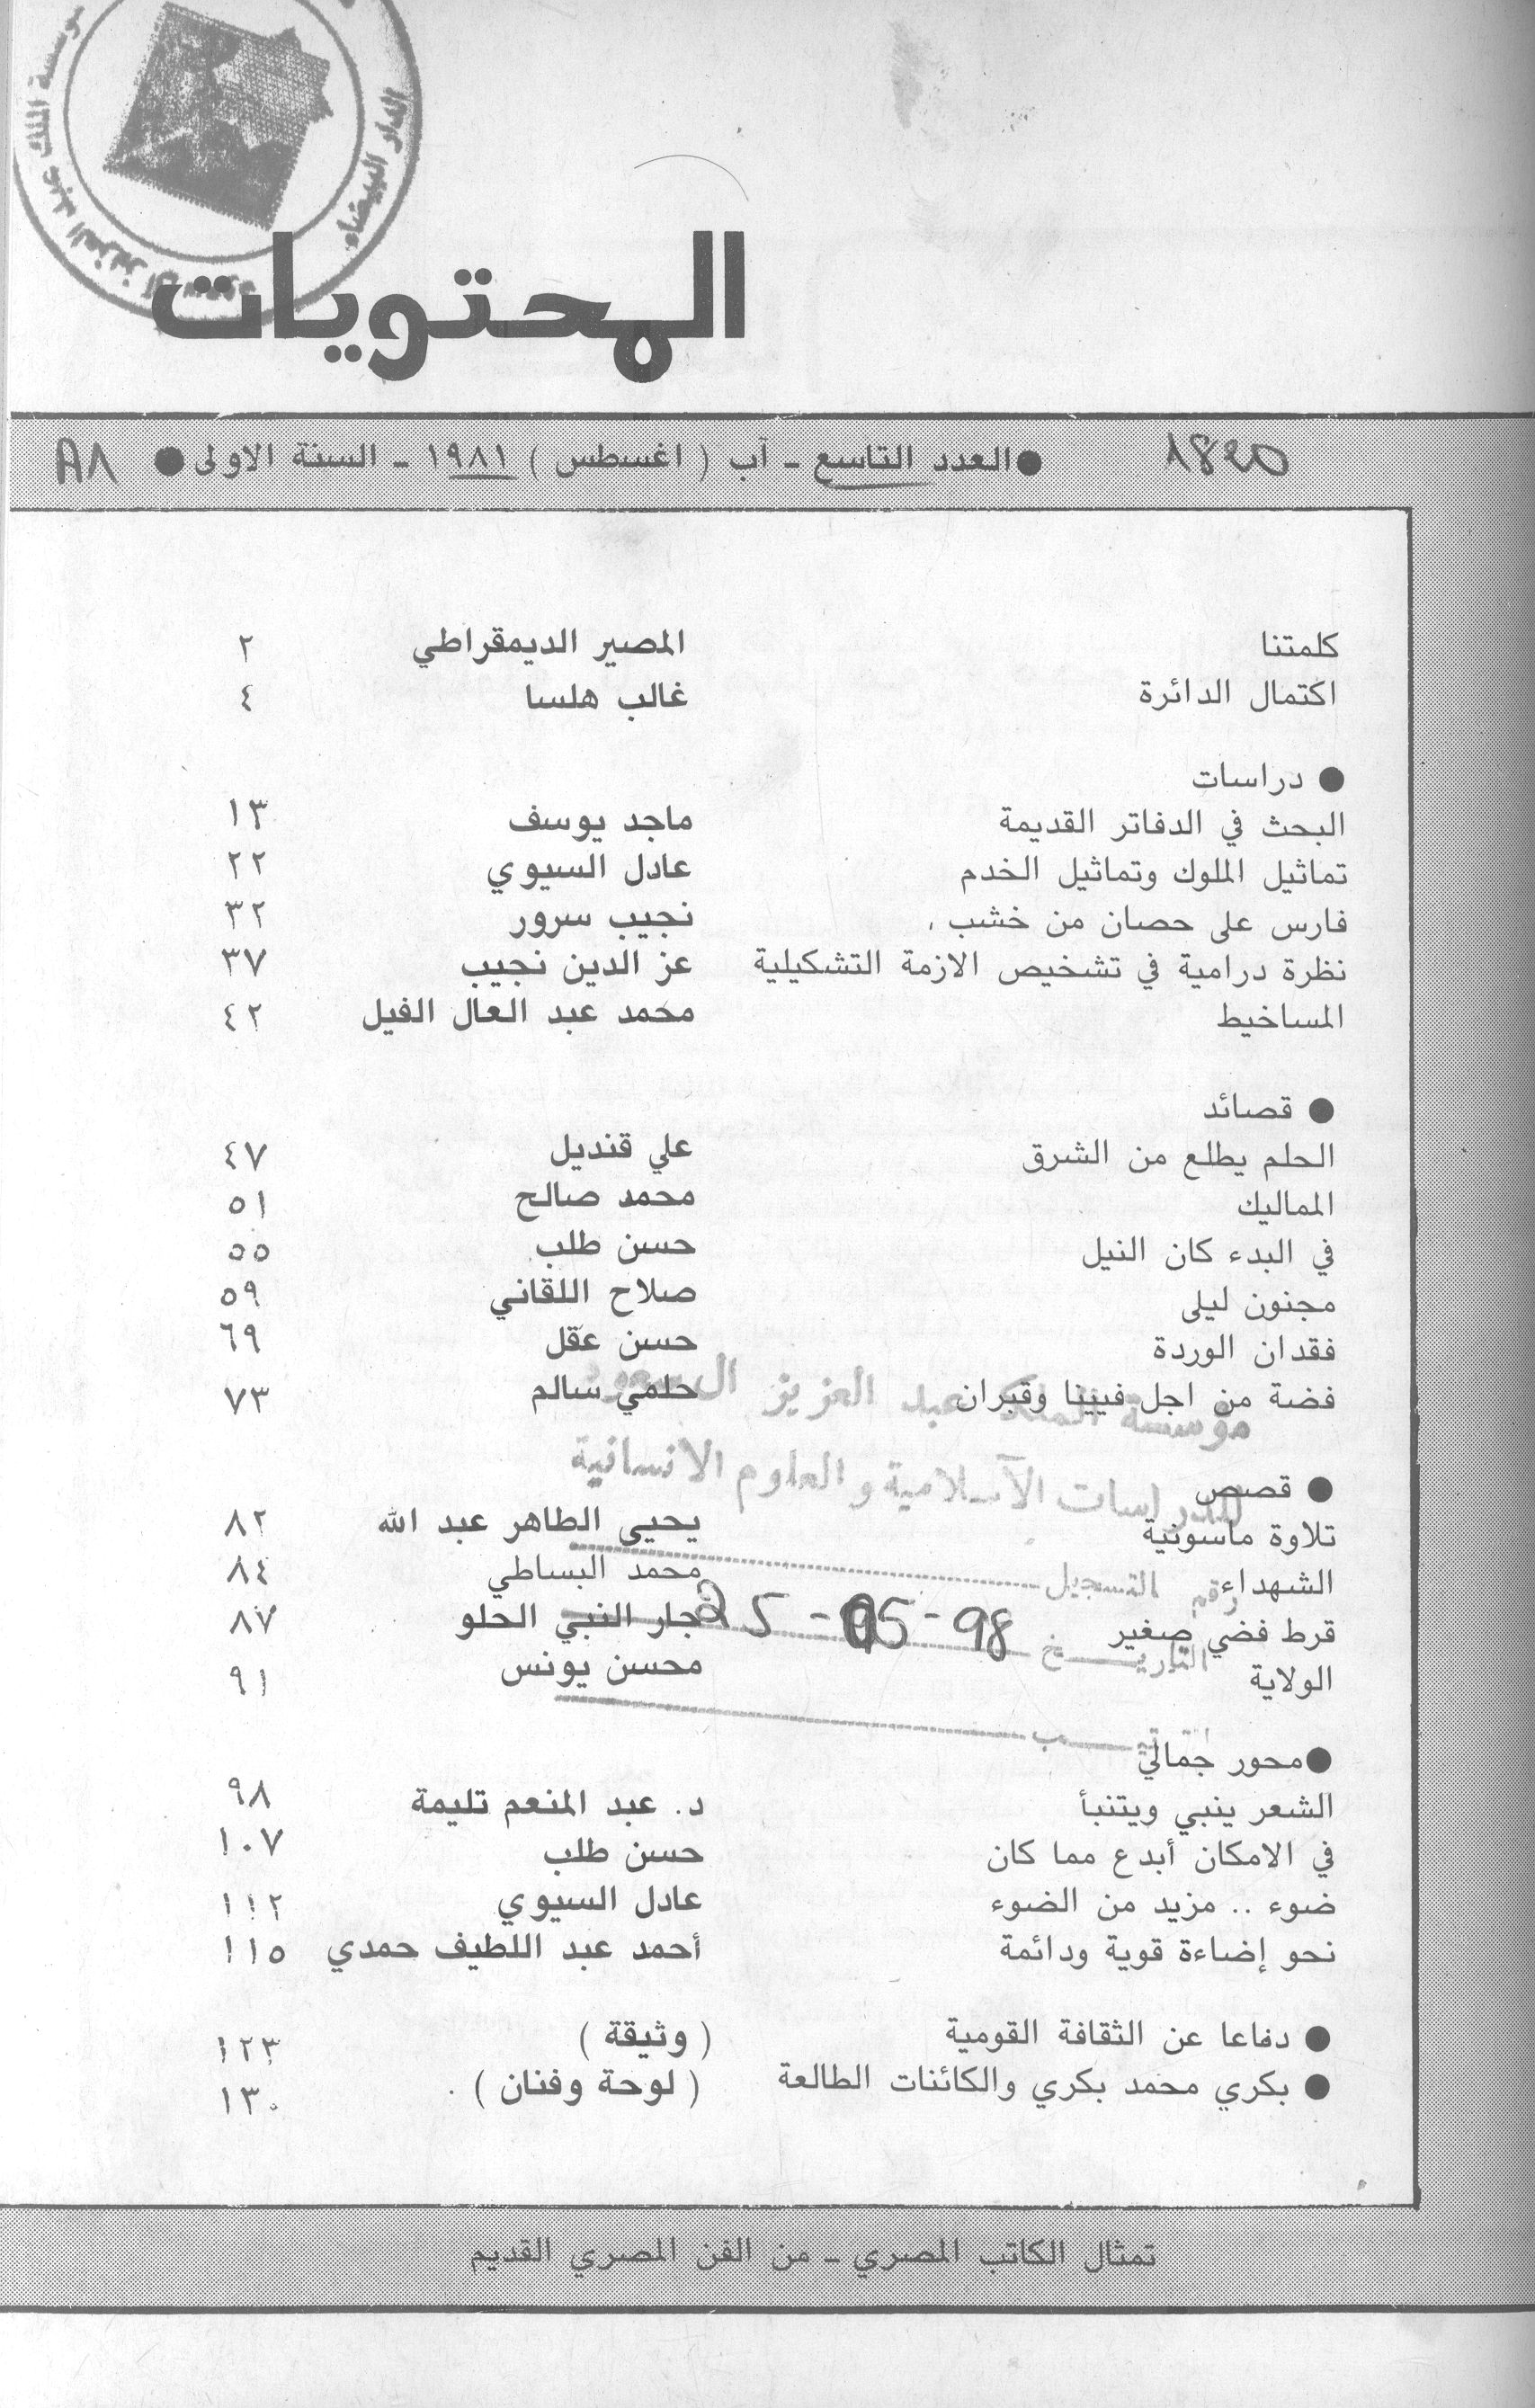 مؤسسة الملك عبد العزيز آل سعود
الدار البيضاء
المحتويات
1820
● العدد التاسع ـ آب ( اغسطس ) ١٩٨١ ـ السنة الاولى ●
كلمتنا المصير الديمقراطي ٢
اكتمال الدائرة غالب هلسا ٤
● دراسات
البحث في الدفاتر القديمة ماجد يوسف ١٣
تماثيل الملوك وتماثيل الخدم عادل السيوي ٢٢
فارس على حصان من خشب نجيب سرور ٣٢
نظرة درامية في تشخيص الازمة التشكيلية عز الدين نجيب ٣٧
المساخيط محمد عبد العال الفيل ٤٢
● قصائد
الحلم يطلع من الشرق علي قنديل ٤٧
المماليك محمد صالح ٥١
في البدء كان النيل حسن طلب ٥٥
مجنون ليلى صلاح اللقاني ٥٩
فقدان الوردة حسن عقل ٦٩
فضة من اجل فيينا وقبران حلمي سالم ٧٣
مؤسسة الملك عبد العزيز ال سعود
للدراسات الآسلامية و العلوم الانسانية
● قصص
تلاوة ماسونية يحيى الطاهر عبد الله ٨٢
الشهداء محمد البساطي ٨٤
رقم التسجيل
قرط فضي صغير جار النبي الحلو ٨٧
التاريــخ 25-05-98
الولاية محسن يونس ٩١
● محور جمالي
الشعر ينبي ويتنبأ د. عبد المنعم تليمة ٩٨
في الامكان أبدع مما كان حسن طلب ١٠٧
ضوء .. مزيد من الضوء عادل السيوي ١١٢
نحو إضاءة قوية ودائمة أحمد عبد اللطيف حمدي ١١٥
● دفاعا عن الثقافة القومية ( وثيقة ) ١٢٣
● بكري محمد بكري والكائنات الطالعة ( لوحة وفنان ) . ١٣٠
تمثال الكاتب المصري ـ من الفن المصري القديم